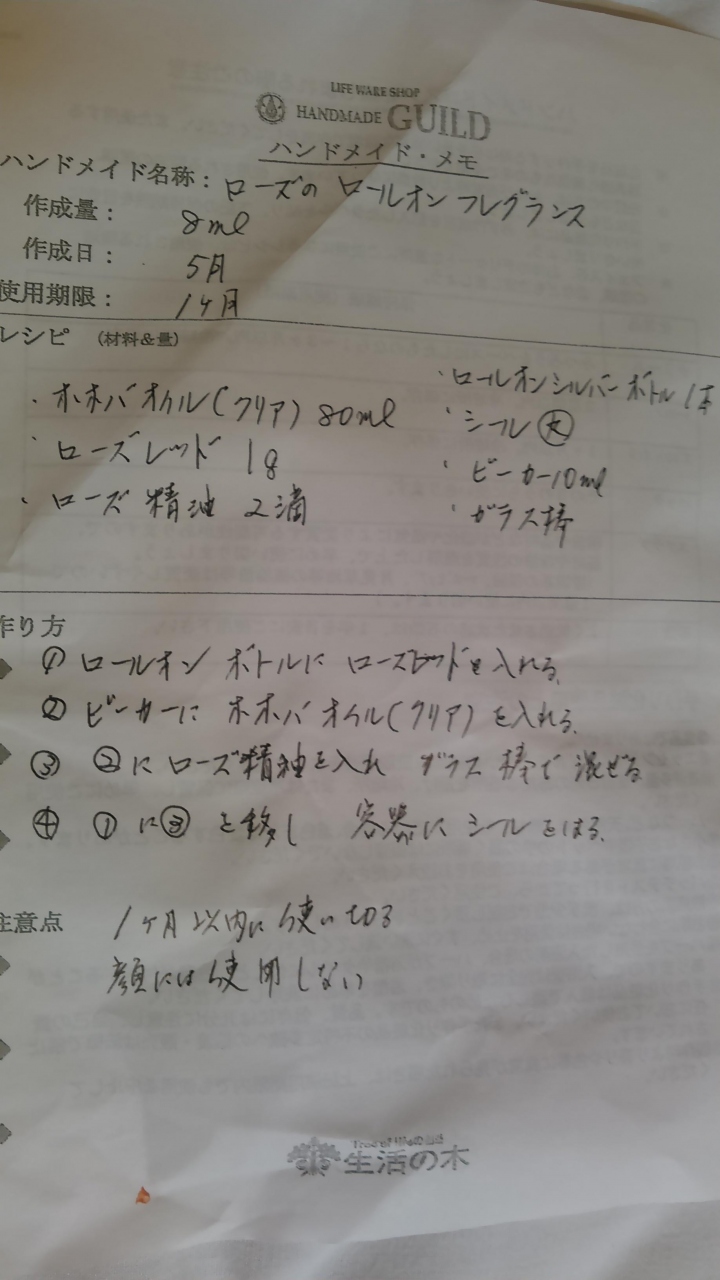 LIFE WARE SHOP
HANDMADE GUILD
ハンドメイド・メモ
ハンドメイド名称：ローズの ロールオン フレグランス
作成量： 8ml
作成日： 5月
使用期限： 1ヶ月
レシピ （材料＆量）
・ホホバオイル(クリア) 80ml
・ローズレッド 1g
・ローズ精油 2滴
・ロールオンシルバーボトル 1本
・シール 大
・ビーカー10ml
・ガラス棒
作り方
① ロールオン ボトルに ローズレッドを入れる。
② ビーカーに ホホバオイル(クリア)を入れる。
③ ②にローズ精油を入れ ガラス棒で 混ぜる
④ ①に③を移し 容器に シールをはる。
注意点 1ヶ月以内に使い切る
顔には使用しない
Tree of life
生活の木